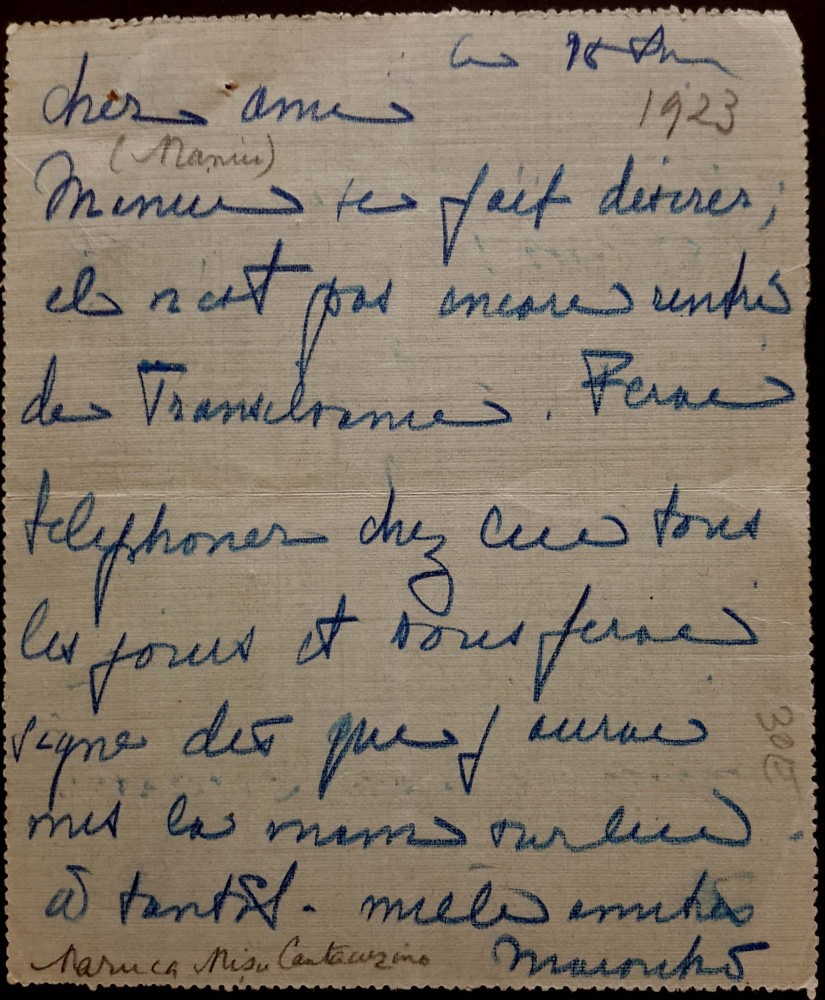 le 18
1923
cher ami
(Maniu)
Maniu se fait désirer,
il n'est pas encore rentré
de Transilvanie. Ferai
téléphoner chez lui tous
les jours et vous ferai
signe dès que j'aurai
mis la main sur lui.
à tantôt - mille amitiés
Marouka
Maruca Mișu Cantacuzino